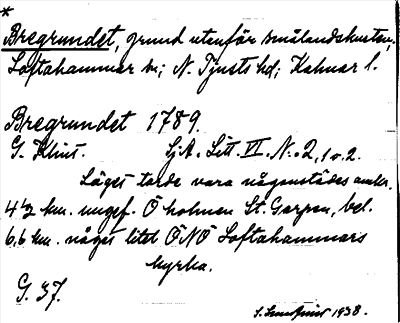 *
Bregrundet, grund utanför smålandskusten,
Loftahammar sn; N. Tjusts hd; Kalmar l.
Bregrundet 1789.
G. Klint. Sjk. Litt. VI. N:o 2, 1 o. 2.
Läget torde vara någonstädes
4½ km. ungef. Ö holmen St. Garpen, bel.
6,6 km. något litet ÖNÖ Loftahammars
kyrka.
G. 37.
1938.